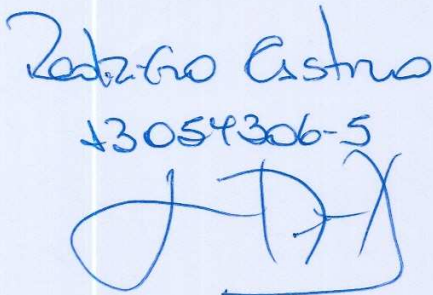 Rodrigo Castro
13054306-5